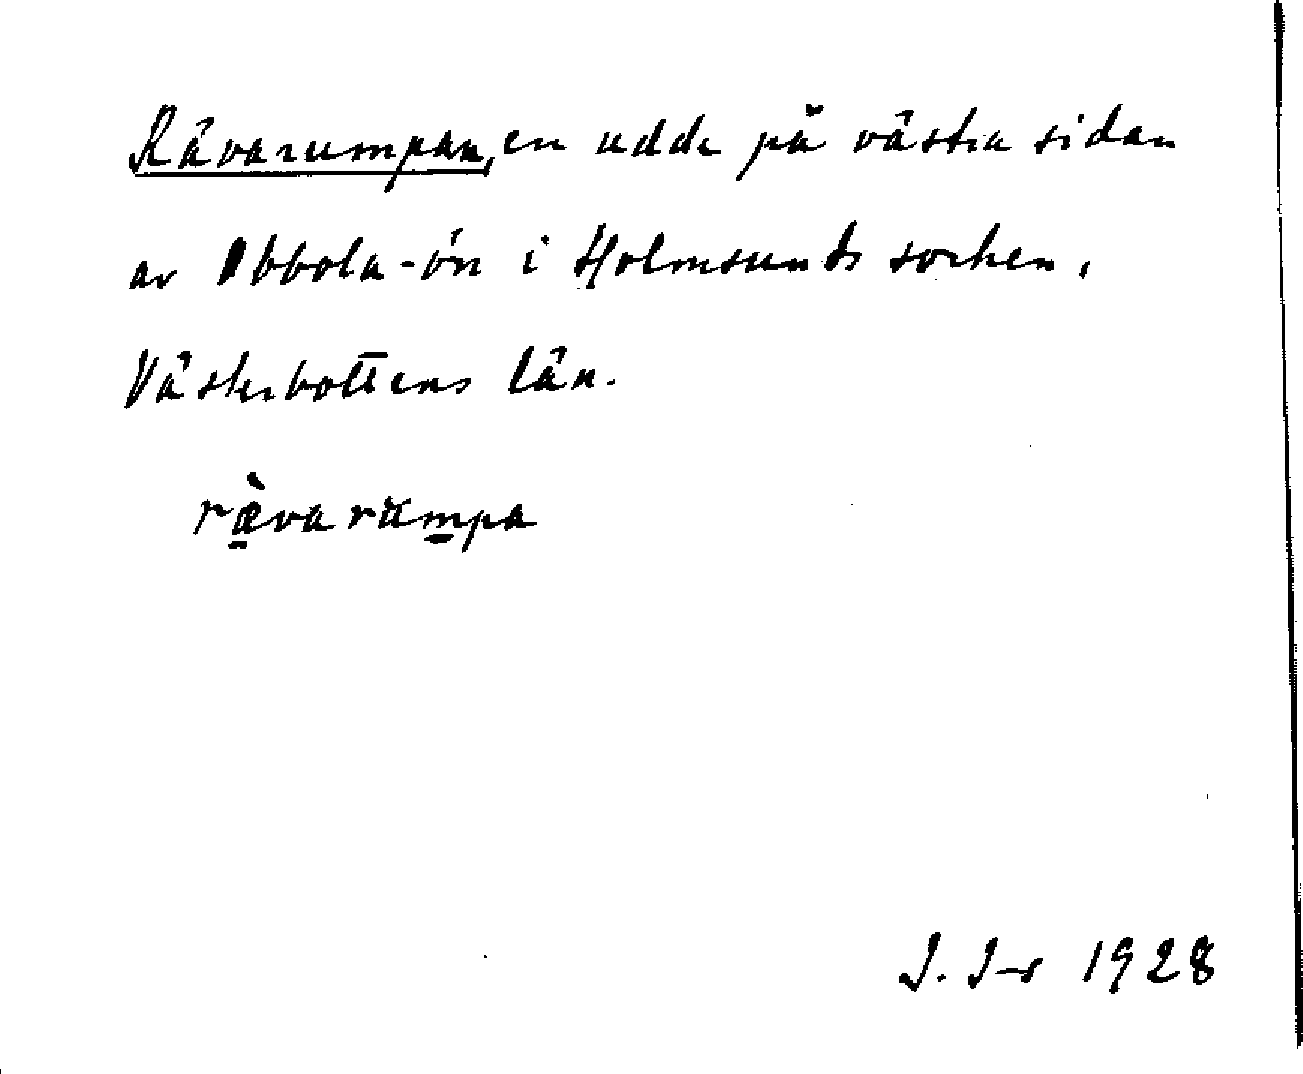 Rävarumpan, en udde på västra sidan
av Obbola-ön i Holmsunds socken,
Västerbottens län.
ræ̀varumpa
J. J-s 1928